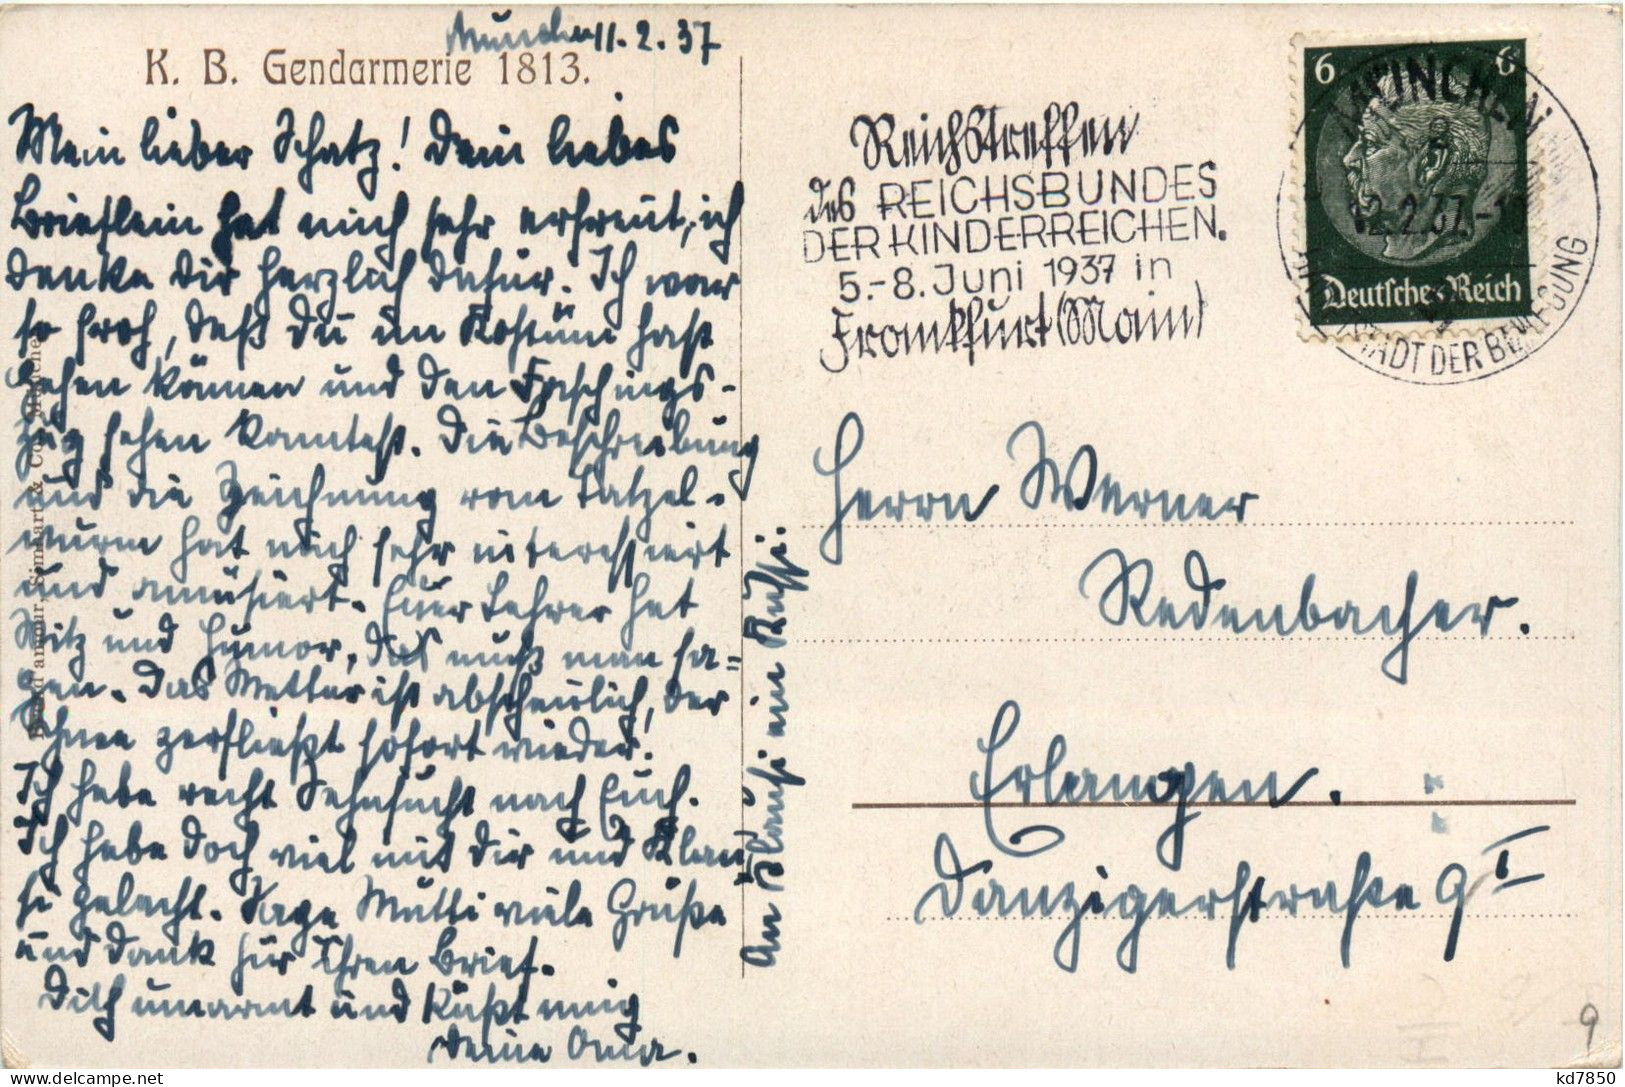 München 11.2.37
K. B. Gendarmerie 1813.
Mein lieber Schatz! Dein liebes
Brieflein hat mich sehr erfreut, ich
danke dir herzlich dafür. Ich war
so froh, daß du im Kostüm hast
gehen können und den Faschings-
zug sehen konntest. Die Beschreibung
und die Zeichnung vom Tatzel-
wurm hat mich sehr interessiert
und amüsiert. Euer Lehrer hat
Witz und Humor, das muß man sa=
gen. Das Wetter ist abscheulich, der
Schnee zerfließt sofort wieder.
Ich habe recht Sehnsucht nach Euch.
Ich habe doch viel mit dir und Klau
si gelacht. Sage Mutti viele Grüße
und Dank für Ihren Brief.
Dich umarmt und küßt innig
Deine Oma.
An Klausi ein Kussi.
Reichstreffen
des REICHSBUNDES
DER KINDERREICHEN.
5.-8. Juni 1937 in
Frankfurt (Main)
6 6
Deutsches Reich
MÜNCHEN
12.2.37.
STADT DER BEWEGUNG
Herrn Werner
Redenbacher.
Erlangen.
Danzigerstraße 9 I
9
kd7850